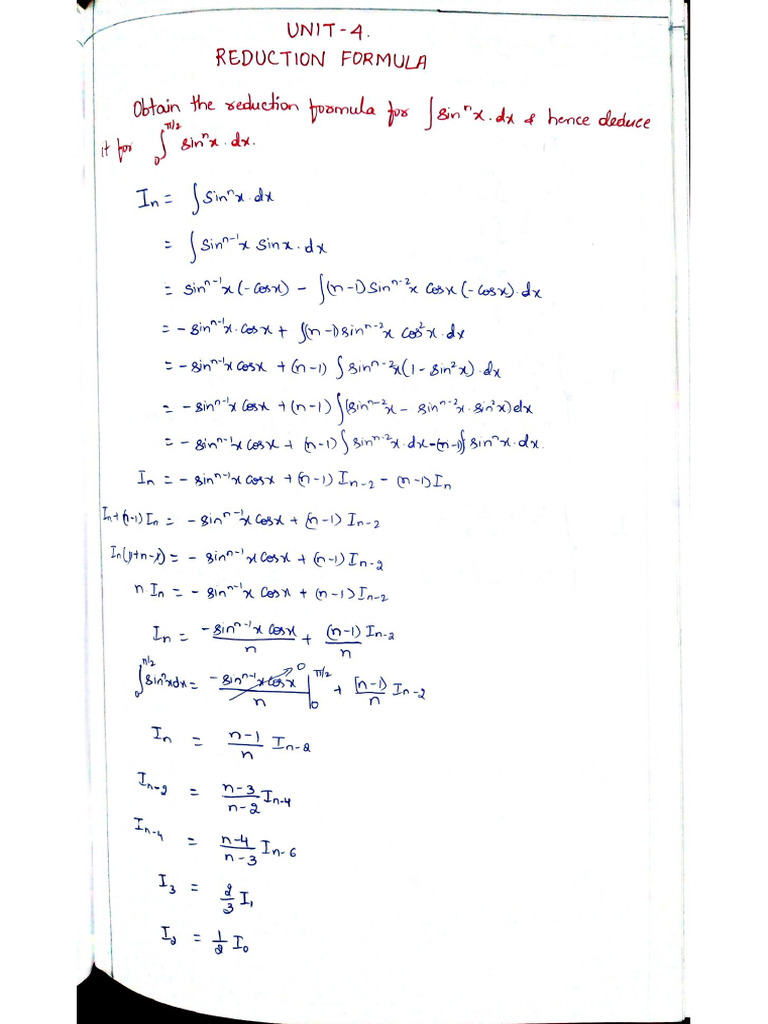 UNIT-4.
REDUCTION FORMULA
Obtain the reduction formula for ∫sinⁿx.dx & hence deduce
it for ∫₀^π/2 sinⁿx.dx.
Iₙ = ∫sinⁿx.dx
= ∫sinⁿ⁻¹x sinx.dx
= sinⁿ⁻¹x(-cosx) - ∫(n-1)sinⁿ⁻²x cosx(-cosx).dx
= -sinⁿ⁻¹x.cosx + ∫(n-1)sinⁿ⁻²x cos²x.dx
= -sinⁿ⁻¹x cosx + (n-1)∫sinⁿ⁻²x(1-sin²x).dx
= -sinⁿ⁻¹x cosx + (n-1)∫(sinⁿ⁻²x - sinⁿ⁻²x.sin²x)dx
= -sinⁿ⁻¹x cosx + (n-1)∫sinⁿ⁻²x.dx-(n-1)∫sinⁿx.dx.
Iₙ = -sinⁿ⁻¹x cosx + (n-1)Iₙ₋₂ - (n-1)Iₙ
Iₙ+(n-1)Iₙ = -sinⁿ⁻¹x cosx + (n-1)Iₙ₋₂
Iₙ(1+n-1) = -sinⁿ⁻¹x cosx + (n-1)Iₙ₋₂
n.Iₙ = -sinⁿ⁻¹x cosx + (n-1)Iₙ₋₂
Iₙ = -sinⁿ⁻¹x cosx/n + (n-1)Iₙ₋₂/n
∫₀^π/2 sinⁿxdx = -sinⁿ⁻¹x cosx/n |₀^π/2 0 + [n-1)/n Iₙ₋₂
Iₙ = n-1/n Iₙ₋₂
Iₙ₋₂ = n-3/n-2 Iₙ₋₄
Iₙ₋₄ = n-4/n-3 Iₙ₋₆
I₃ = 2/3 I₁
I₂ = 1/2 I₀